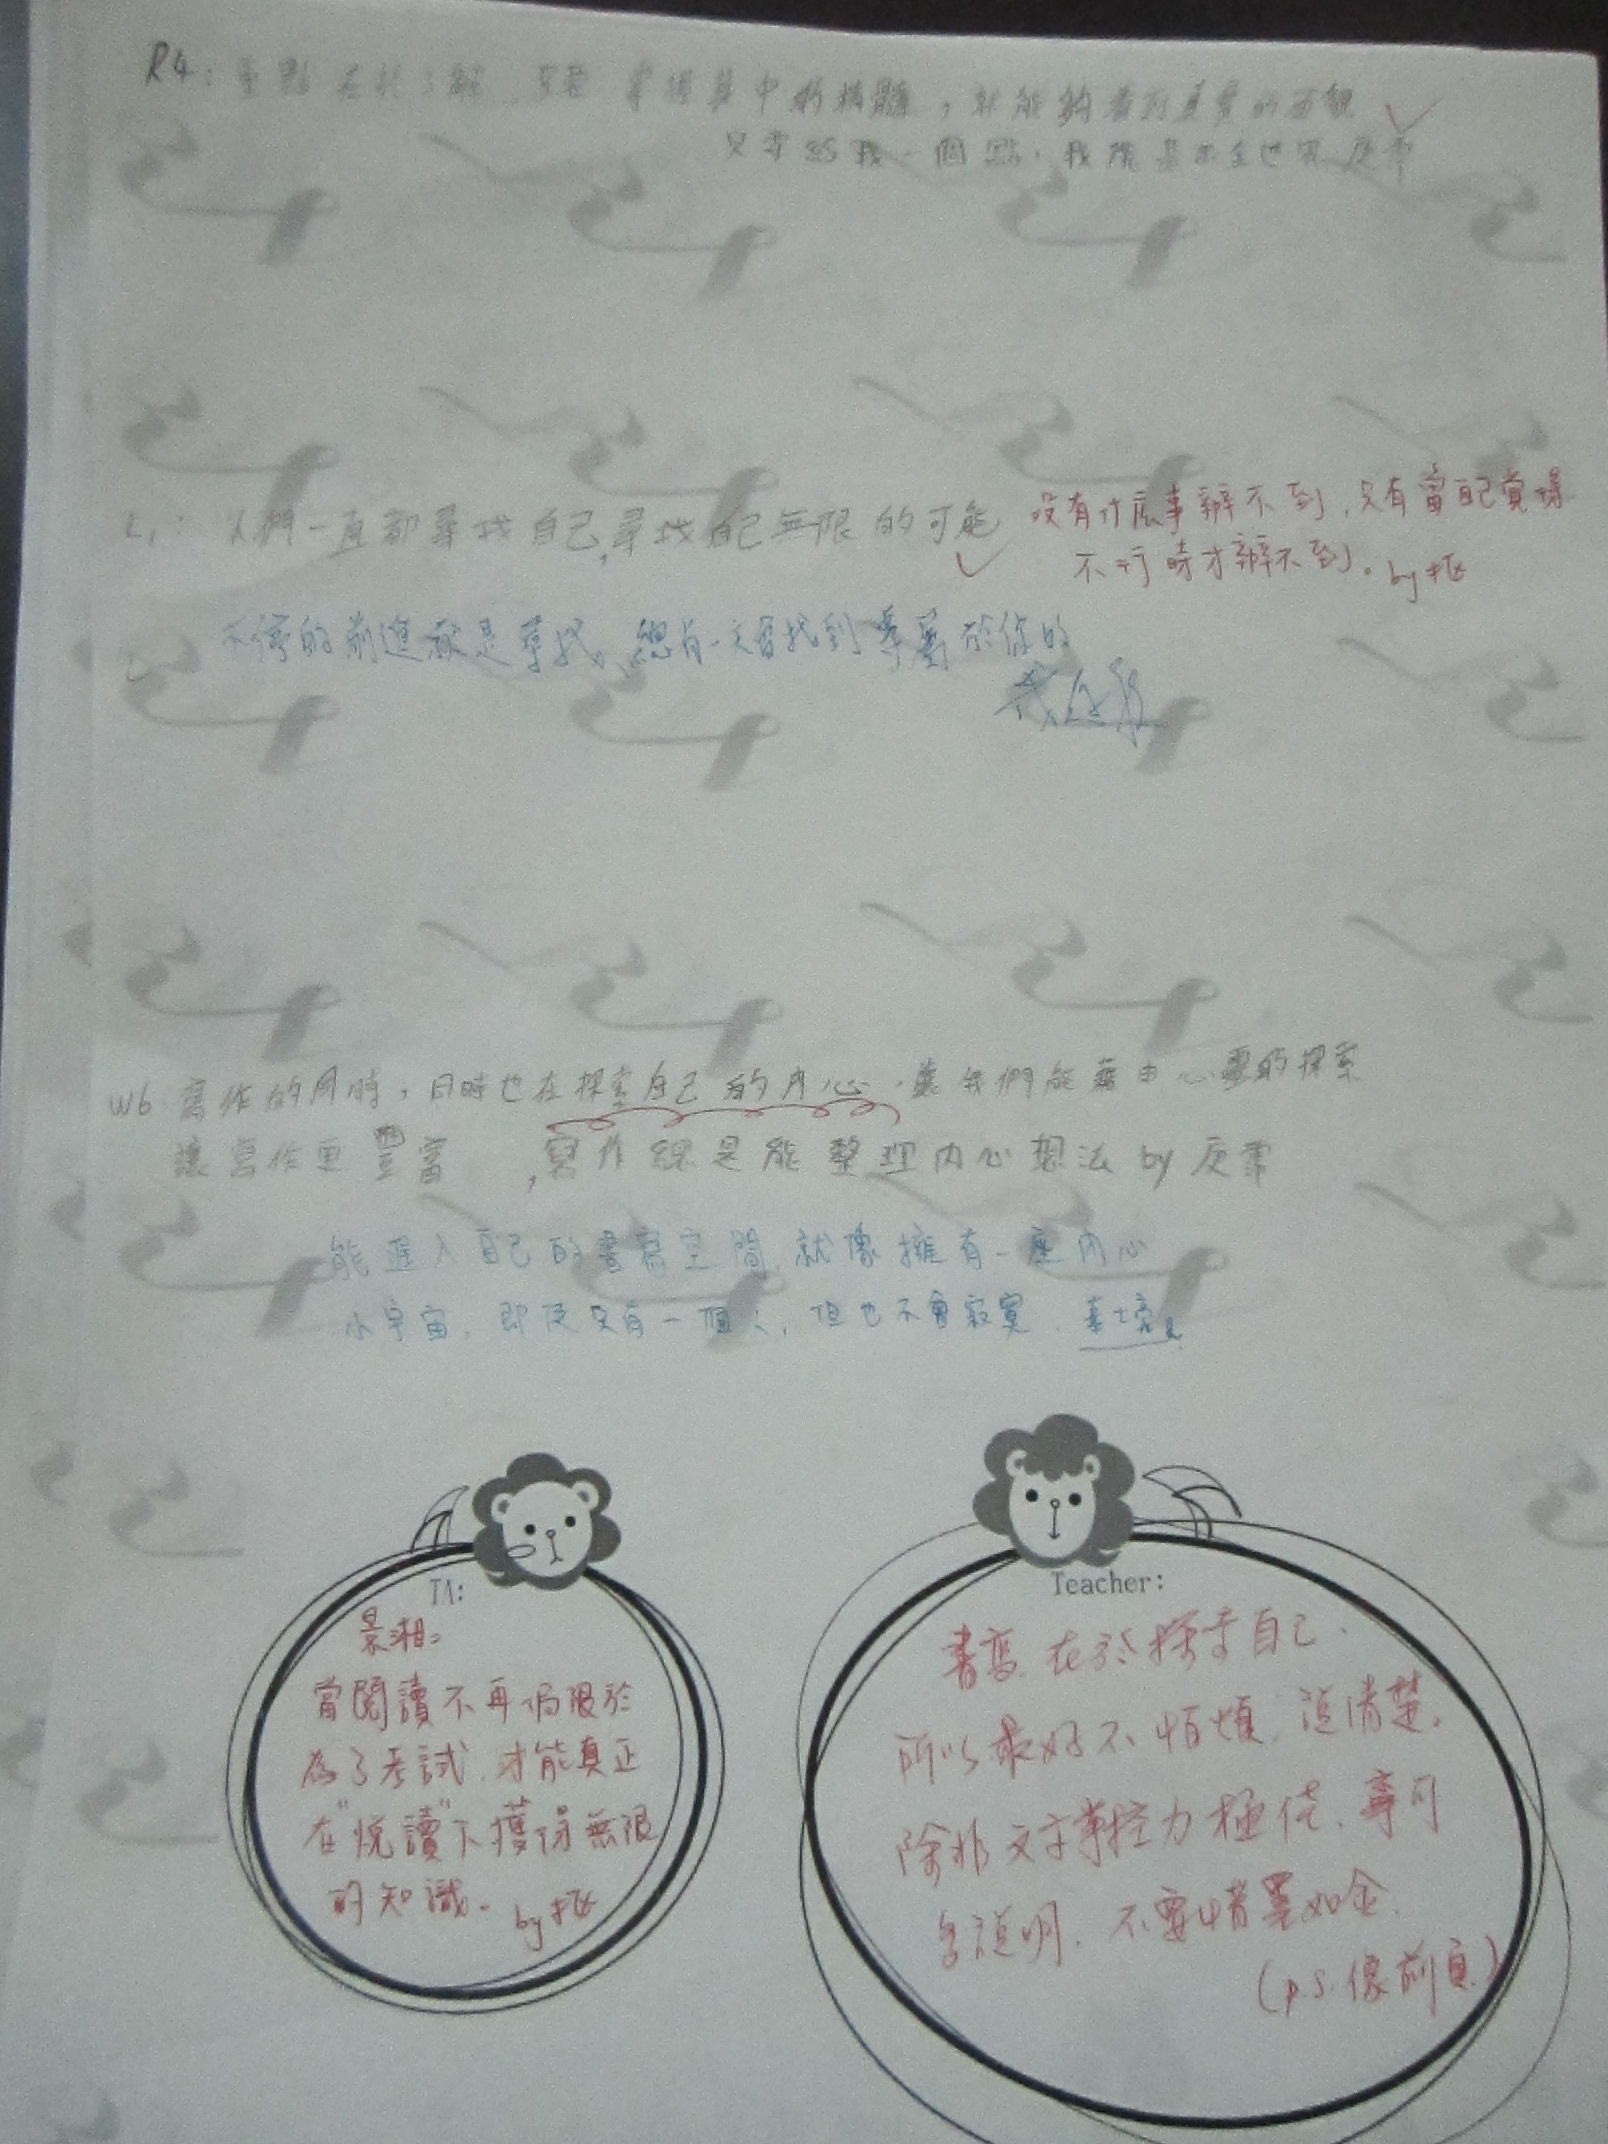 R4：重點在於了解，只要掌握其中的精髓，就能夠看到真實的面貌
只要給我一個點，我能
L1：人們一直都尋找自己，尋找自己無限的可能
沒有什麼事辦不到，只有當自己覺得
不行時才辦不到。by
不停的前進就是尋找，總有一天會找到專屬於你的
W6 寫作的同時，同時也在探索自己的內心，讓我們能藉由心靈的探索
讓寫作更豐富，寫作總是能整理內心想法 by
能進入自己的書寫空間，就像擁有一座內心
小宇宙，即使只有一個人，但也不會寂寞。
TA:
景湘:
當閱讀不再侷限於
為了考試，才能真正
在"悅讀"下獲得無限
的知識。by
Teacher:
書寫，在於探尋自己，
所以最好不怕煩，說清楚。
除非文字掌控力極佳，寧可
多說明，不要惜墨如金。
(p.s.像前頁)